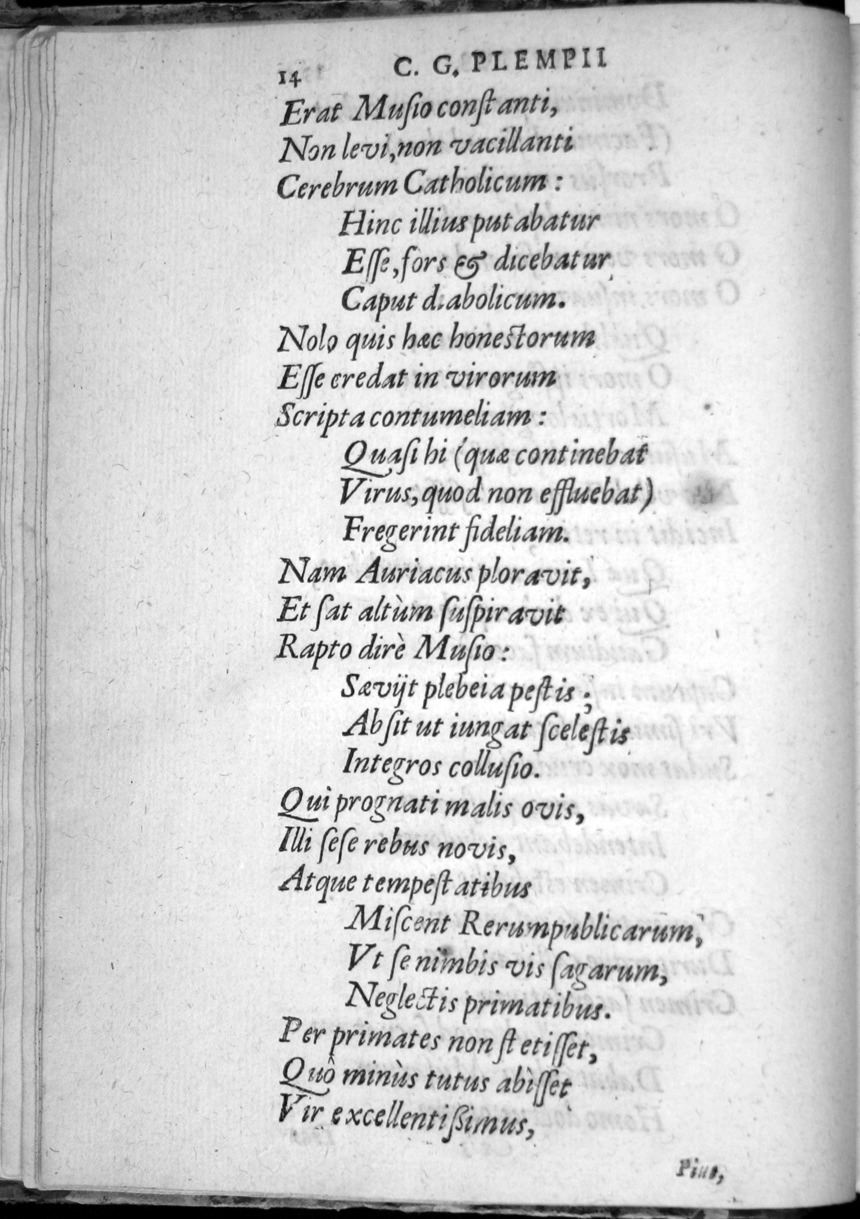 14 C. G. PLEMPII
Erat Muſio conſtanti,
Non levi, non vacillanti
Cerebrum Catholicum :
Hinc illius putabatur
Eſſe, fors & dicebatur
Caput diabolicum.
Nolo quis hæc honestorum
Eſſe credat in virorum
Scripta contumeliam :
Quaſi hi (quæ continebat
Virus, quod non effluebat)
Fregerint fideliam.
Nam Auriacus ploravit,
Et ſat altùm ſuſpiravit
Rapto dirè Muſio :
Sævijt plebeia peſtis ;
Abſit ut iungat ſceleſtis
Integros colluſio.
Qui prognati malis ovis,
Illi ſeſe rebus novis,
Atque tempeſtatibus
Miſcent Rerumpublicarum,
Vt ſe nimbis vis ſagarum,
Neglectis primatibus.
Per primates non ſtetiſſet,
Quò minùs tutus abiſſet
Vir excellentißimus,
Pius,